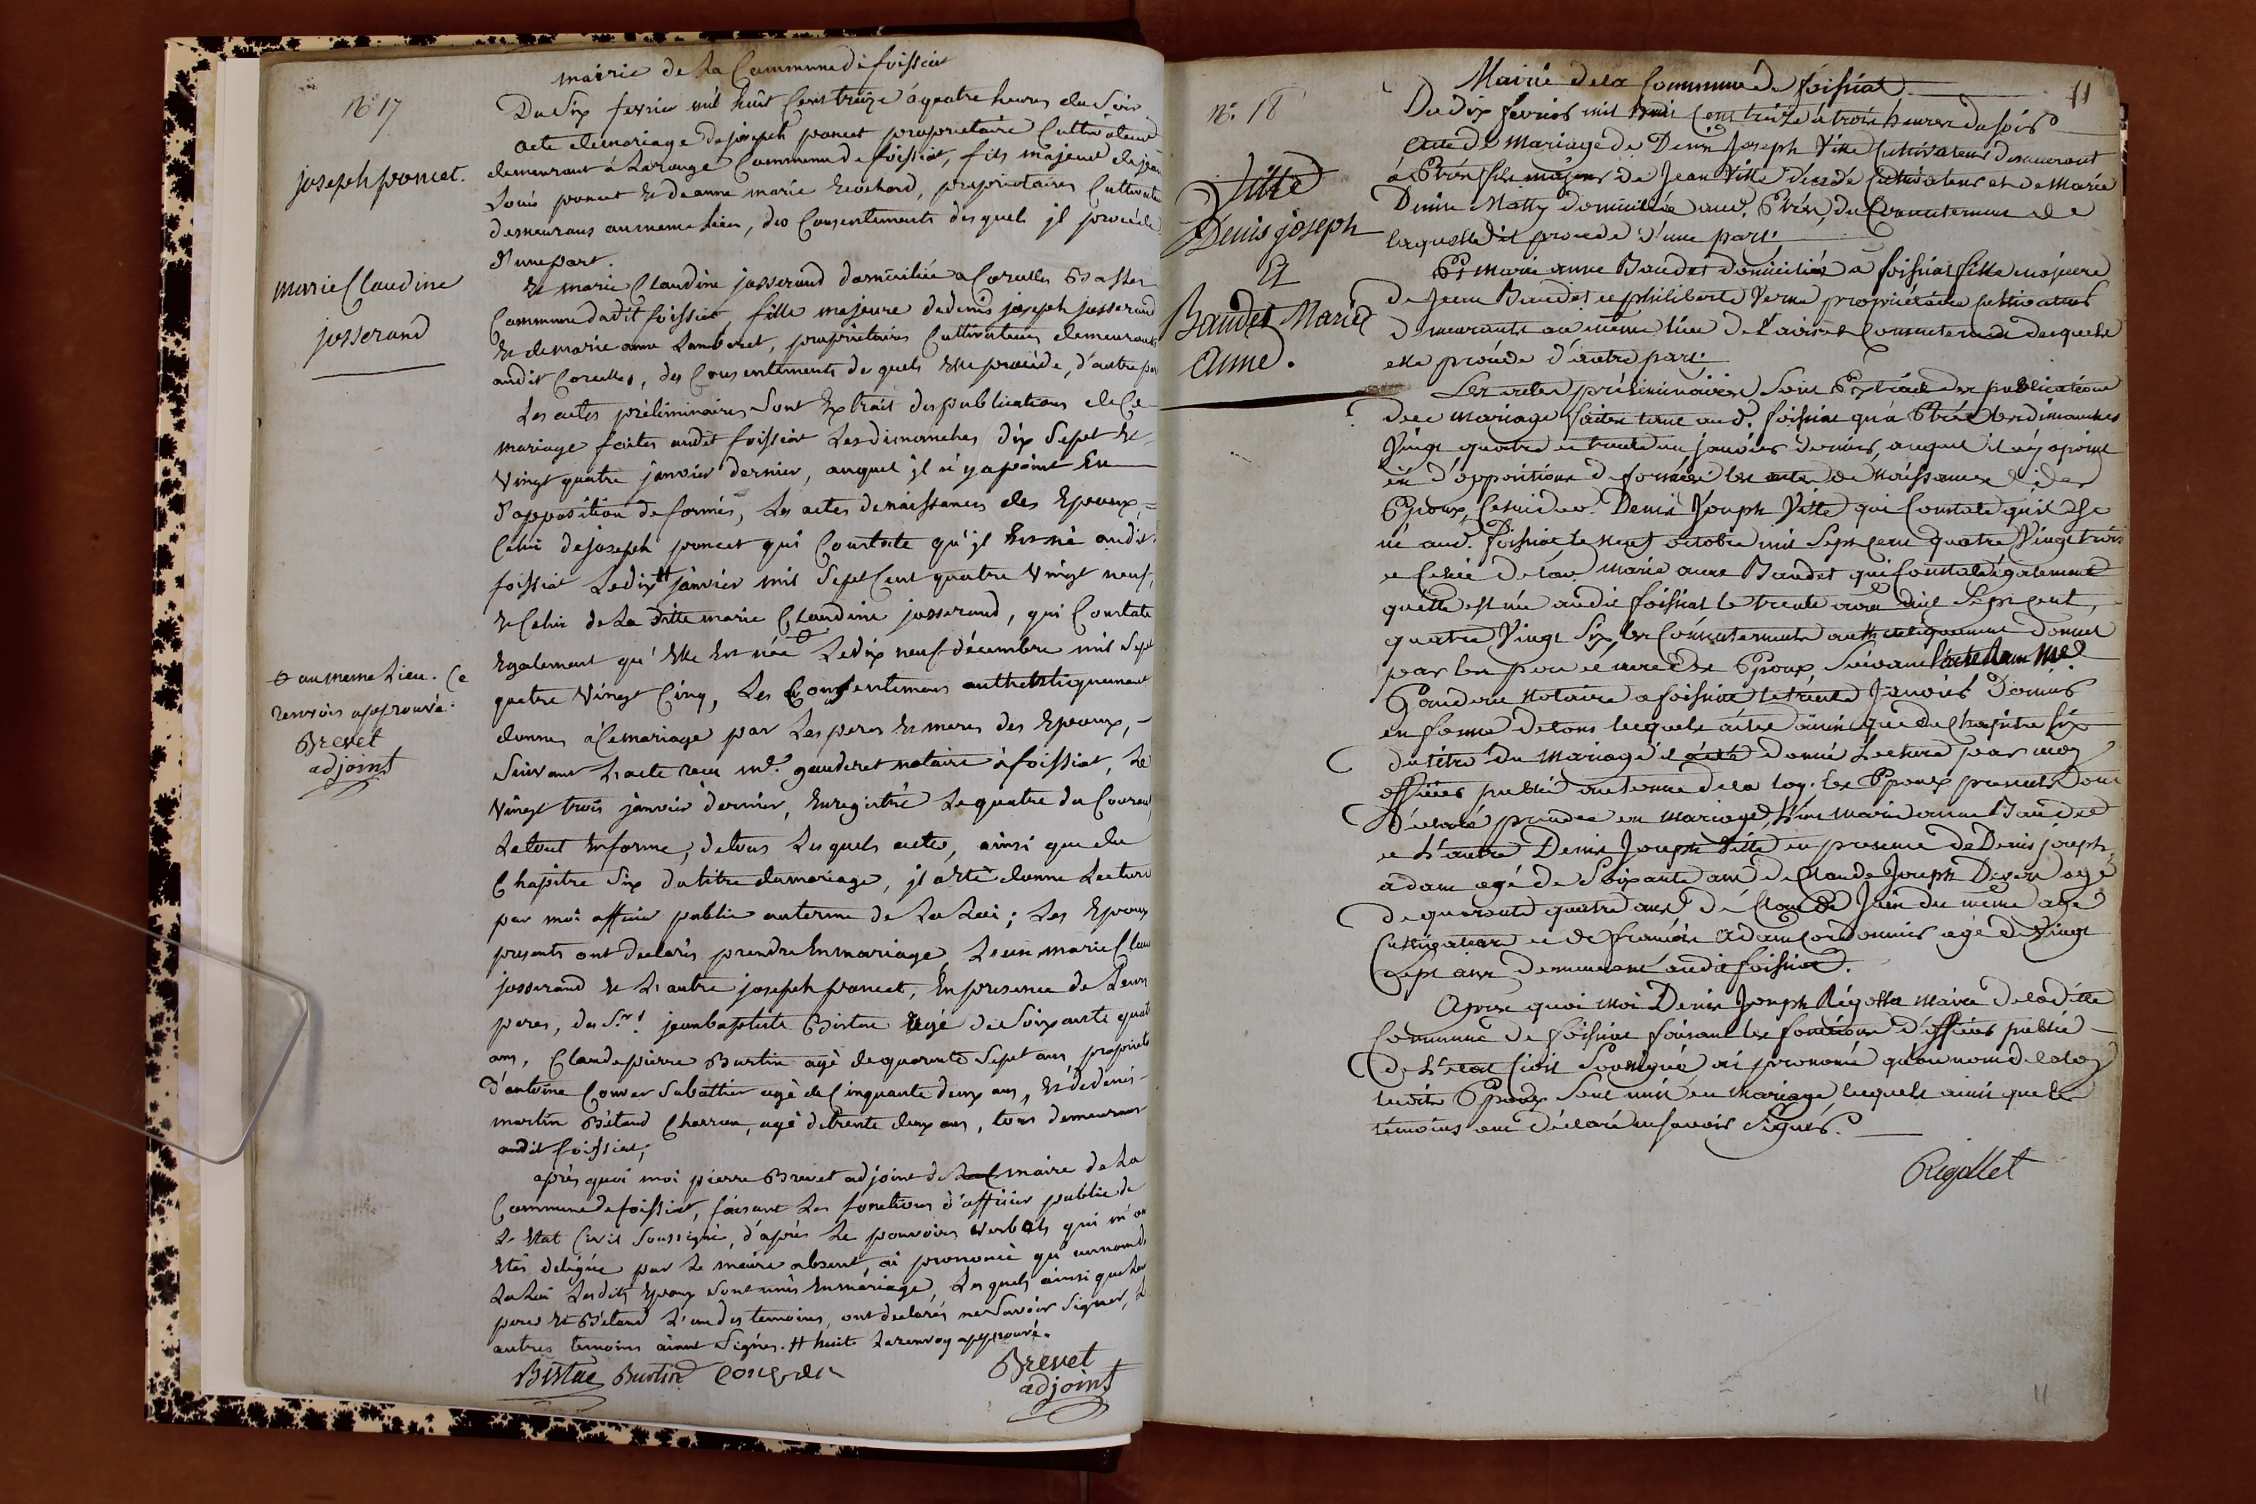 mairie de la Commune de foissiat
N.° 17
Du Six fevrier mil huit Cent treize à quatre heures du Soir
acte de mariage de joseph poncet proprietaire Cultivateur
joseph poncet.
demeurant à Commune de foissiat, fils majeur de jean
Louis poncet et de anne marie proprietaires Cultivate
demeurans au meme lieu, des Consentements desquels jl procède
d'une part.
marie Claudine
josserand
et marie Claudine josserand domiciliée a Corcelles
Commune dudit foissiat, fille majeure de denis joseph josserand
et de marie anne Lamberet, proprietaires Cultivateurs demeurant
audit Corcelles, des Consentements desquels Elle procède, d'autre par
Les actes préliminaires Sont Extrait des publications de Ce
mariage faites audit foissiat Les dimanches dix Sept et
Vingt quatre janvier dernier, auquel jl n'y a point Eu
d'opposition de formés, Les actes de naissances des Epoux,
Celui de joseph poncet qui Constate qu'jl Est né audit
foissiat Le dix H janvier mil Sept Cent quatre Vingt neuf,
et Celui de La ditte marie Claudine josserand, qui Constate
Egalement qu'Elle Est née Le dix neuf décembre mil Sept
au meme Lieu. Ce
renvois approuvé.
Brevet
adjoint
quatre Vingt Cinq, Les Consentemens authentiquement
donnés à Ce mariage par Les peres et meres des Epoux,
Suivant L'acte reçu m.e gauderet notaire à foissiat, Le
Vingt trois janvier dernier, Enregistré Le quatre du Courant
Le tout En forme, de tous Lesquels actes, ainsi que du
Chapitre Six du titre du mariage, jl a été donné Lecture
par moi officier public au terme de La Loi; Les Epoux
presents ont declarés prendre En mariage, L'un marie Clau
josserand et L'autre joseph poncet, En presence de Leurs
peres, des S.rs jean baptiste Bistue agé de Soixante quat
ans, Claude pierre Burtin agé de quarante Sept ans, propriet
d'antoine Sabathier agé de Cinquante deux ans, et de denis
martin Bétand Charron, agé de trente deux ans, tous demeurans
audit foissiat,
après quoi moi pierre Brevet adjoint de maire de La
Commune de foissiat, faisant Les fonctions d'officier public de
L'Etat Civil Soussigné, d'après Le pouvoirs verbals qui m'on
Etés deligué par Le maire absent, ai prononcé qu'au nom de
La Loi Lesdits Epoux Sont unis En mariage, Lesquels ainsi que Les
peres et Bétand L'un des temoins, ont declarés ne Savoir Signer, L
autres temoins aiant Signés. H huit Le renvoy approuvé.
Bistue Burtin
Brevet
adjoint
11
Mairie de la Commune de foissiat
N.° 18
Du dix fevrier mil huit Cent treize à trois heures du soir
Acte de mariage de Denis Joseph Vitte Cultivateur demeurant
Vitte
Denis joseph
Et
Baudet Marie
Anne.
à Etréz fils majeur de Jean Vitte décédé Cultivateur et de Marie
Denise domiciliée aud. Etréz, du Consentement de
laquelle il procede d'une part.
Et Marie anne Baudet domiciliée à foissiat fille majeure
de Jean Baudet et philiberte Verne propriétaire Cultivateurs
demeurants au même lieu de l'avis et Consentement desquels
elle procède d'autre part.
Les actes préliminaires Sont Extrait des publications
de ce mariage faites tant aud. foissiat qu'à Etréz les dimanches
Vingt quatre et trente un janvier dernier, auquel il n'y a point
eû d'oppositions de formées les actes de Naissances des
Epoux, Celui de Denis Joseph Vitte qui Constate qu'il Est
né aud. foissiat le neuf octobre mil Sept cent quatre Vingt trois
et Celui de lad. Marie anne Baudet qui Constate également
qu'elle est née audit foissiat le trente aout mil Sept cent,
quatre Vingt Six, les Consentements authentiquement donnés
par les pere et mere des Epoux Suivant l'acte M.e
Gauderet Notaire a foissiat le trente Janvier dernier
en forme de tous lesquels actes ainsi que du Chapitre six
du titre du Mariage il a été donné Lecture par moy
officier public au terme de la loy. les Epoux presents ont
déclaré prendre en mariage, L'un Marie anne Baudet
et L'autre Denis Joseph Vitte en presence de Denis joseph
adam agé de Soixante ans de Claude Joseph agé
de quarante quatre ans de Claude Juin du même age
Cultivateurs et de françois Adam Cordonnier agé de Vingt
sept ans demeurant audit foissiat.
Après quoi Moi Denis Joseph Rigollet Maire de la ditte
Commune de foissiat faisant les fonctions d'officier public
de L'état Civil Soussigné ai prononcé qu'au nom de la loy
lesdits Epoux Sont unis en Mariage, lesquels ainsi que les
témoins ont déclaré ne savoir Signer.
Rigollet
11